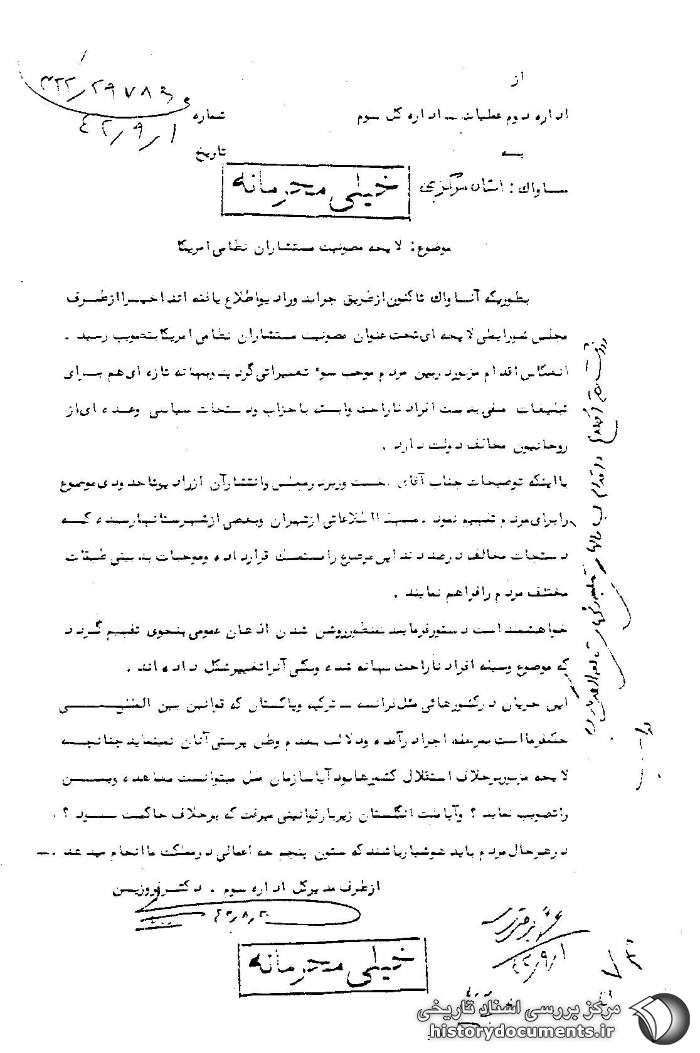 از
۳۲۲/۲۹۷۸۶
اداره دوم عملیات ــ اداره کل سوم
شماره
۴۲/۹/۱
به
تاریخ
ساواک: استان مرکزی
خیلی محرمانه
موضوع: لایحه مصونیت مستشاران نظامی امریکا
بطوریکه آنساواک تاکنون از طریق جراید ورادیو اطلاع یافته اند اخیرا از طرف
مجلس شورایملی لایحه ای تحت عنوان مصونیت مستشاران نظامی امریکا بتصویب رسید .
انعکاس اقدام مزبور در بین مردم موجب سوء تعبیراتی گردیده وبهانه تازه ای هم برای
تبلیغات منفی بدست افراد ناراحت وابسته باحزاب ودستجات سیاسی وعده ای از
روحانیون مخالف دولت داد .
با اینکه توضیحات جناب آقای نخست وزیر در مجلس وانتشار آن از رادیو تا حدودی موضوع
را برای مردم تفهیم نمود . معهذا اطلاعاتی از تهران وبعضی از شهرستانها رسیده که
دستجات مخالف در صددند این موضوع را مستمسک قرار داده وموجبات بدبینی طبقات
مختلف مردم را فراهم نمایند .
خواهشمند است دستور فرمایند بمنظور روشن شدن اذهان عمومی بنحوی تفهیم گردد
که موضوع وسیله افراد ناراحت بهانه شده وبکلی آنرا تغییر شکل داده اند .
این جریان در کشورهائی مثل فرانسه ــ ترکیه وپاکستان که قوانین بین المللی
حکمفرما است بمرحله اجرا در آمده ودلالت بعدم وطن پرستی آنان نمینماید چنانچه
لایحه مزبور برخلاف استقلال کشورها بود آیا سازمان ملل میتوانست معاهده وین
را تصویب نماید ؟ وآیا ملت انگلستان زیر بار قوانینی میرفت که برخلاف حاکمیت بود ؟ .
در هر حال مردم باید هوشیار باشند که ستون پنجم چه اعمالی در مملکت ما انجام میدهند . ــ
از طرف مدیر کل اداره سوم . دکتر نوروزیهن
خیلی محرمانه
۴۲/۹/۱
مرکز بررسی اسناد تاریخی
historydocuments.ir